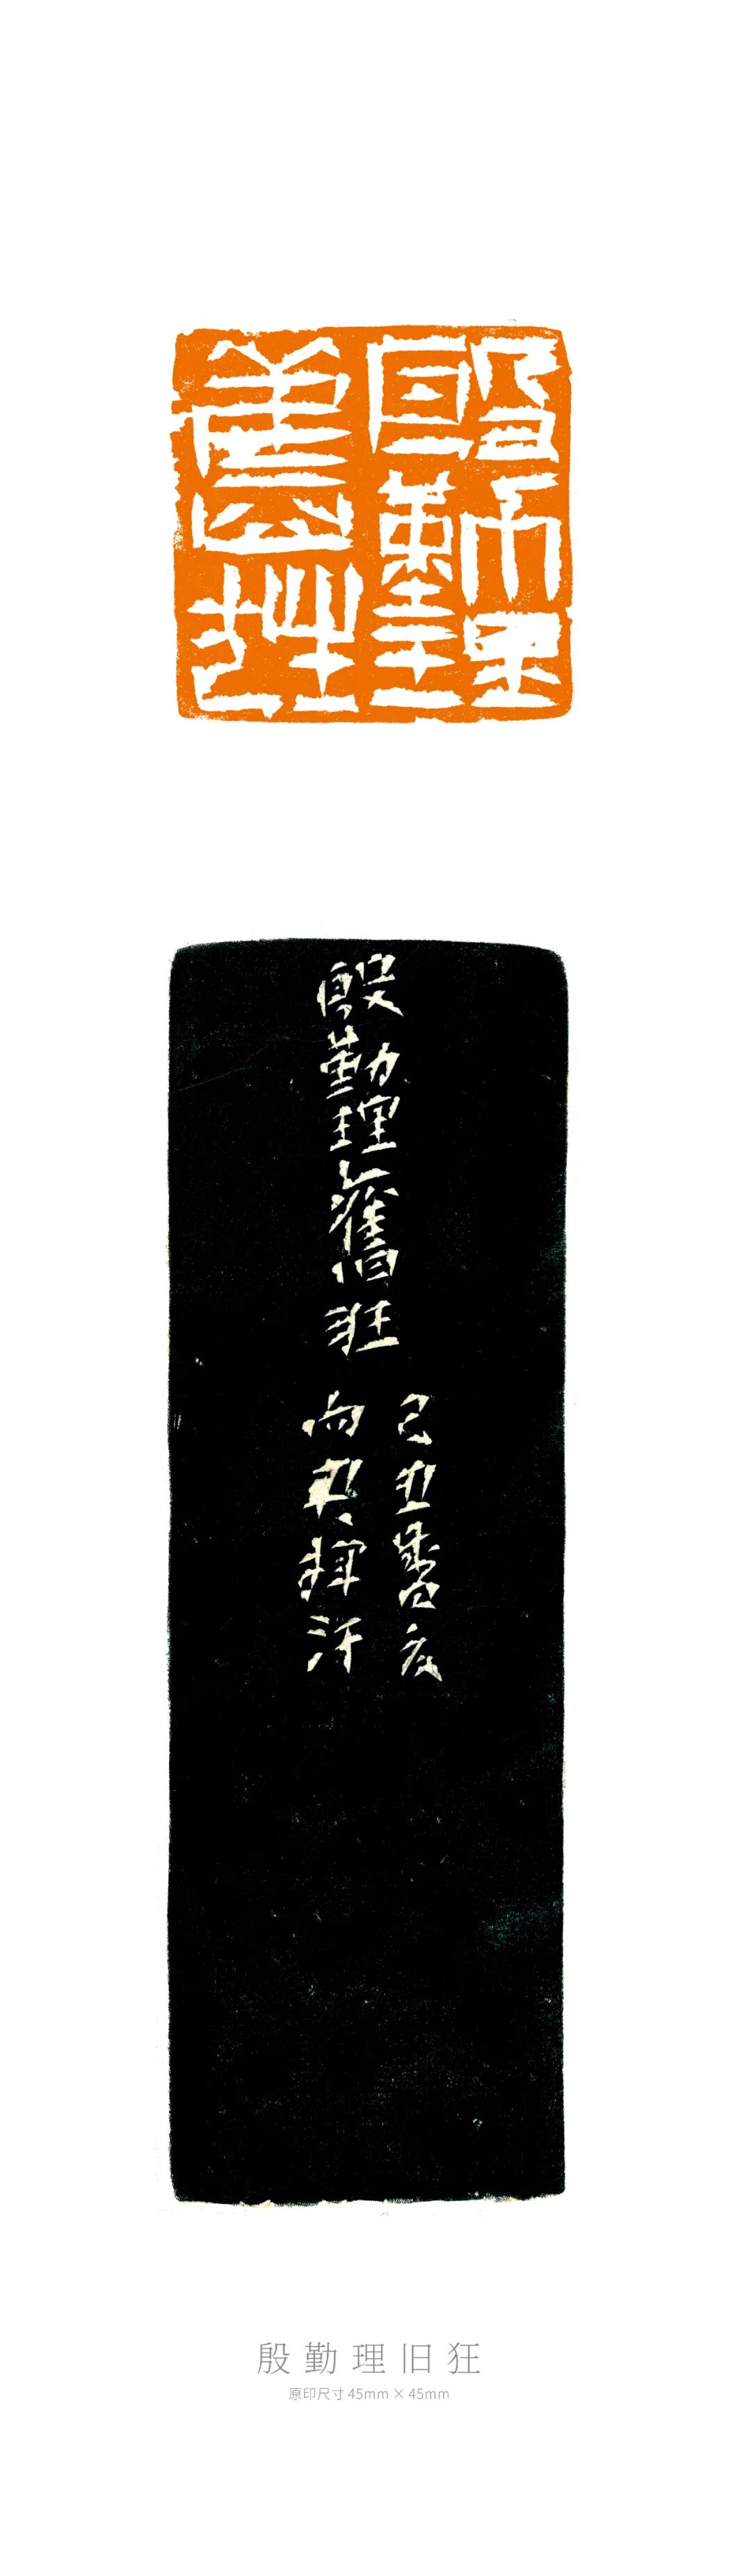 殷勤理
舊狂
殷勤理舊狂
己丑暑夜
向丑揮汗
殷勤理旧狂
原印尺寸 45mm × 45mm